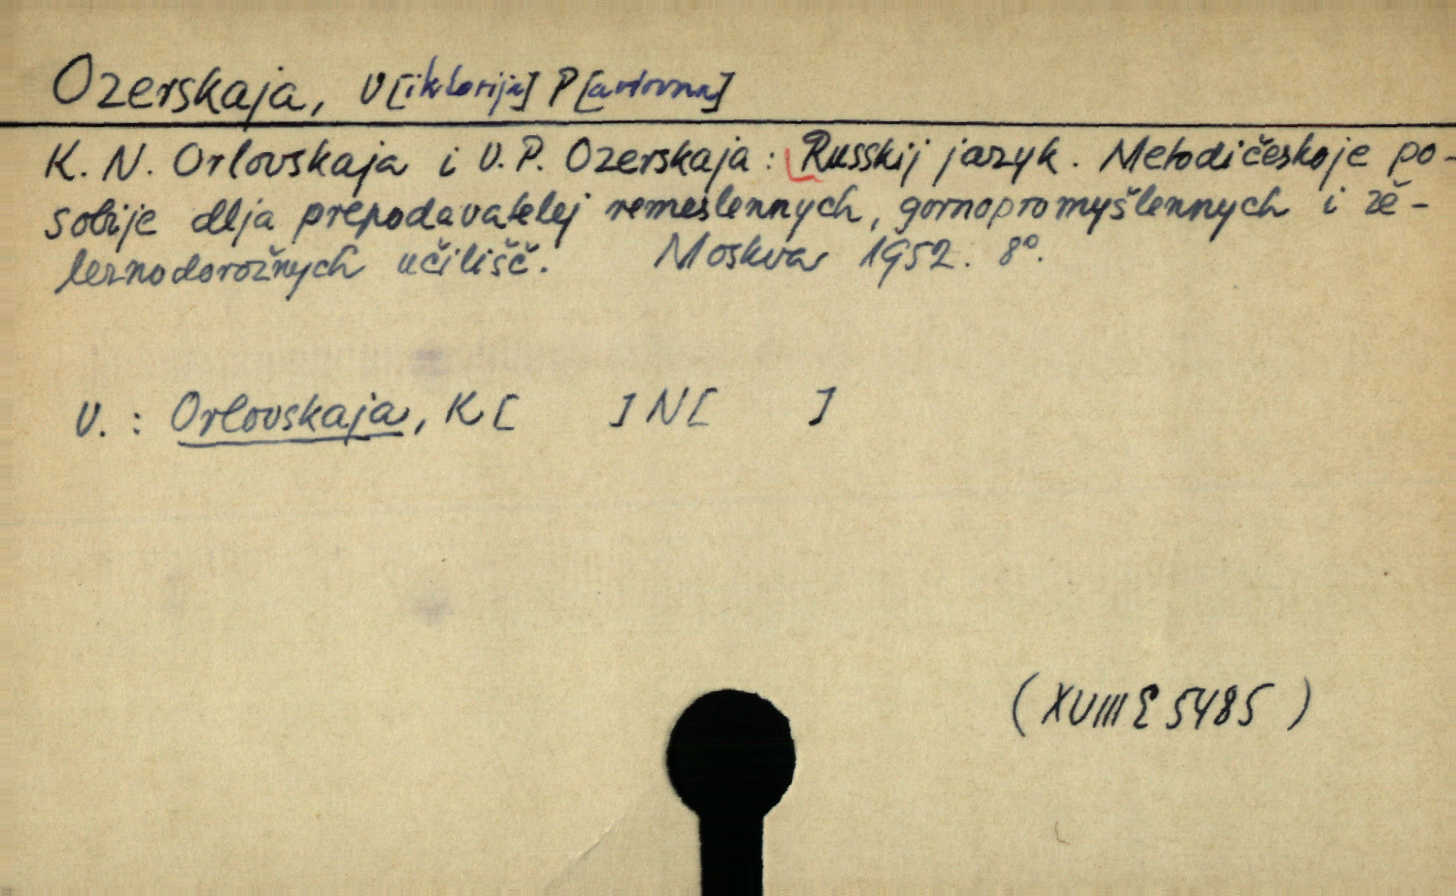 Ozerskaja, V[iktorija] P[avlovna]
K. N. Orlovskaja i V. P. Ozerskaja: Russkij jazyk. Metodičeskoje po-
sobije dlja prepodavatelej remeslennych, gornopromyšlennych i žě-
leznodorožnych učilišč. Moskva 1952. 8°.
V. : Orlovskaja, K[ ] N[ ]
(XVIII E 5485)